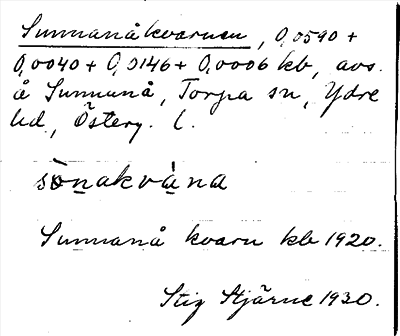 Sunnanåkvarnen, 0,0590 +
0,0040 + 0,0146 + 0,0006 kb, avs.
å Sunnanå, Torpa sn, Ydre
hd, Österg. l.
sònakvàna
Sunnanå kvarn kb 1920.
Stig Stjärne 1930.